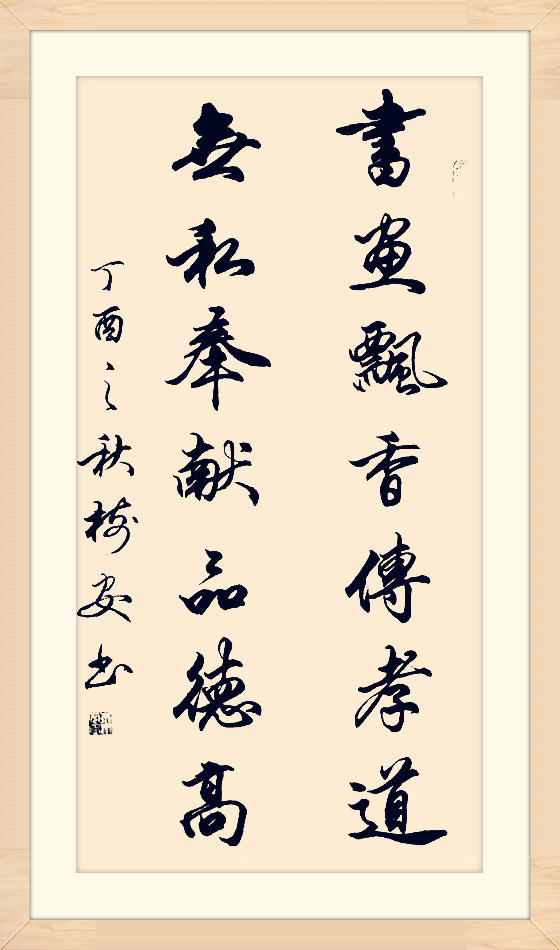 書畫飄香傳孝道
無私奉献品德高
丁酉之秋树安书